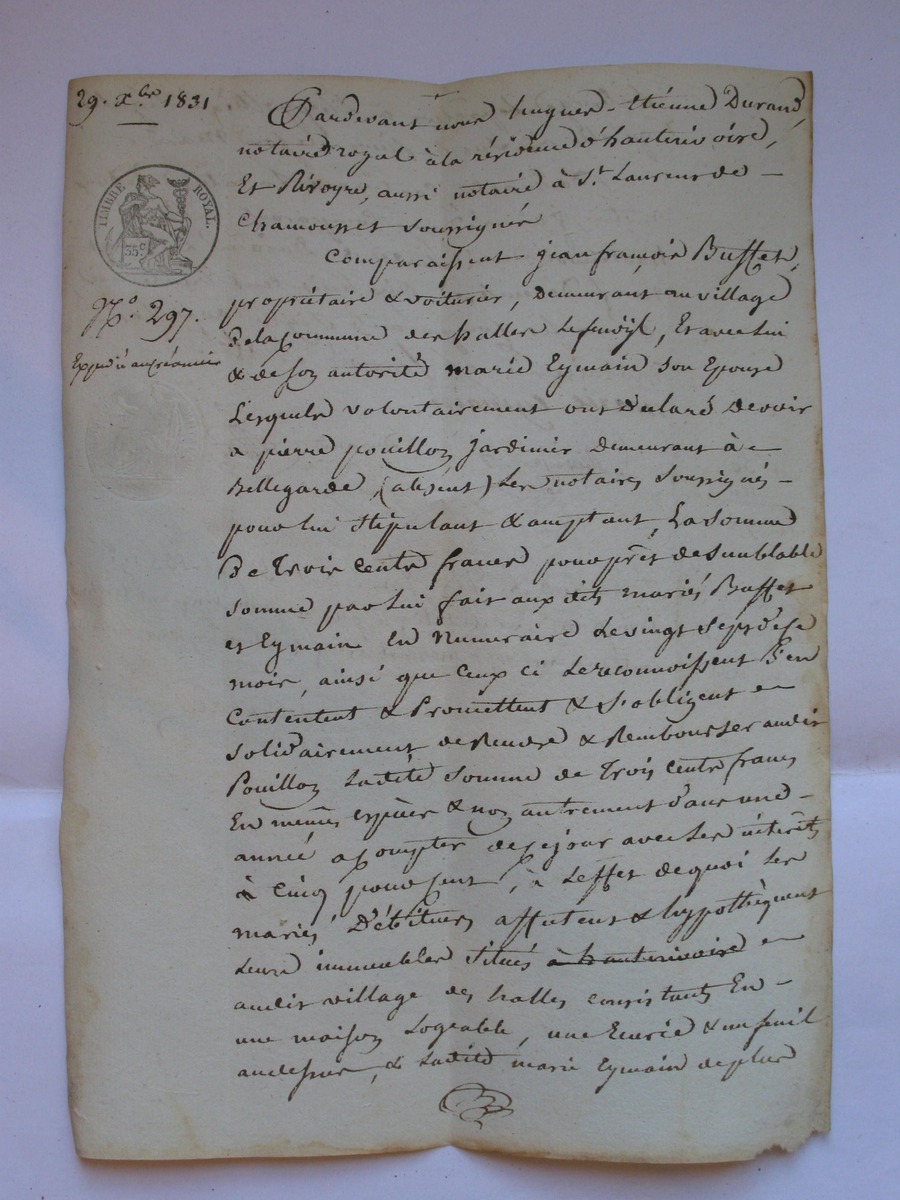 29. Xbre 1831
TIMBRE ROYAL.
35 C
No. 297.
Expédié au créancier
Pardevant nous hugues-Etienne Durand,
notaire royal à la résidence d'hauterivoire,
Et Rivoyre, aussi notaire à St. Laurens de -
Chamousset soussignés
Comparaissent jean françois Buffet,
propriétaire & voiturier, demeurant au village
de la commune des halles Lefenoÿl, Et avec lui
& de son autorité marie Eymain son Epouse
Lesquels volontairement ont déclaré devoir
a pierre pouillon jardinier demeurant à -
Bellegarde, (absent) Les notaires soussignés -
pour lui stipulant & acceptant, La somme
De Trois Cents francs pour prêt de semblable
somme par lui fait aux dits mariés Buffet
et Eymain En numeraire Le vingt sept de ce
mois, ainsi que Ceux ci Le reconnoissent s'en
Contentent & Promettent & s'obligent -
solidairement de Rendre & Rembourser audit
Pouillon Ladite somme de Trois Cents francs
En mêmes espèces & non autrement dans une -
année a compter de ce jour avec Les intérêts
à Cinq pour cent, à L'effet de quoi Les
mariés Débiteurs affectent & hypothèquent
Leurs immeubles situés à hauterivoire -
audit village des halles consistants En -
une maison Logeable, une Ecurie & un feuil
audessus, & Ladite marie Eymain de plus